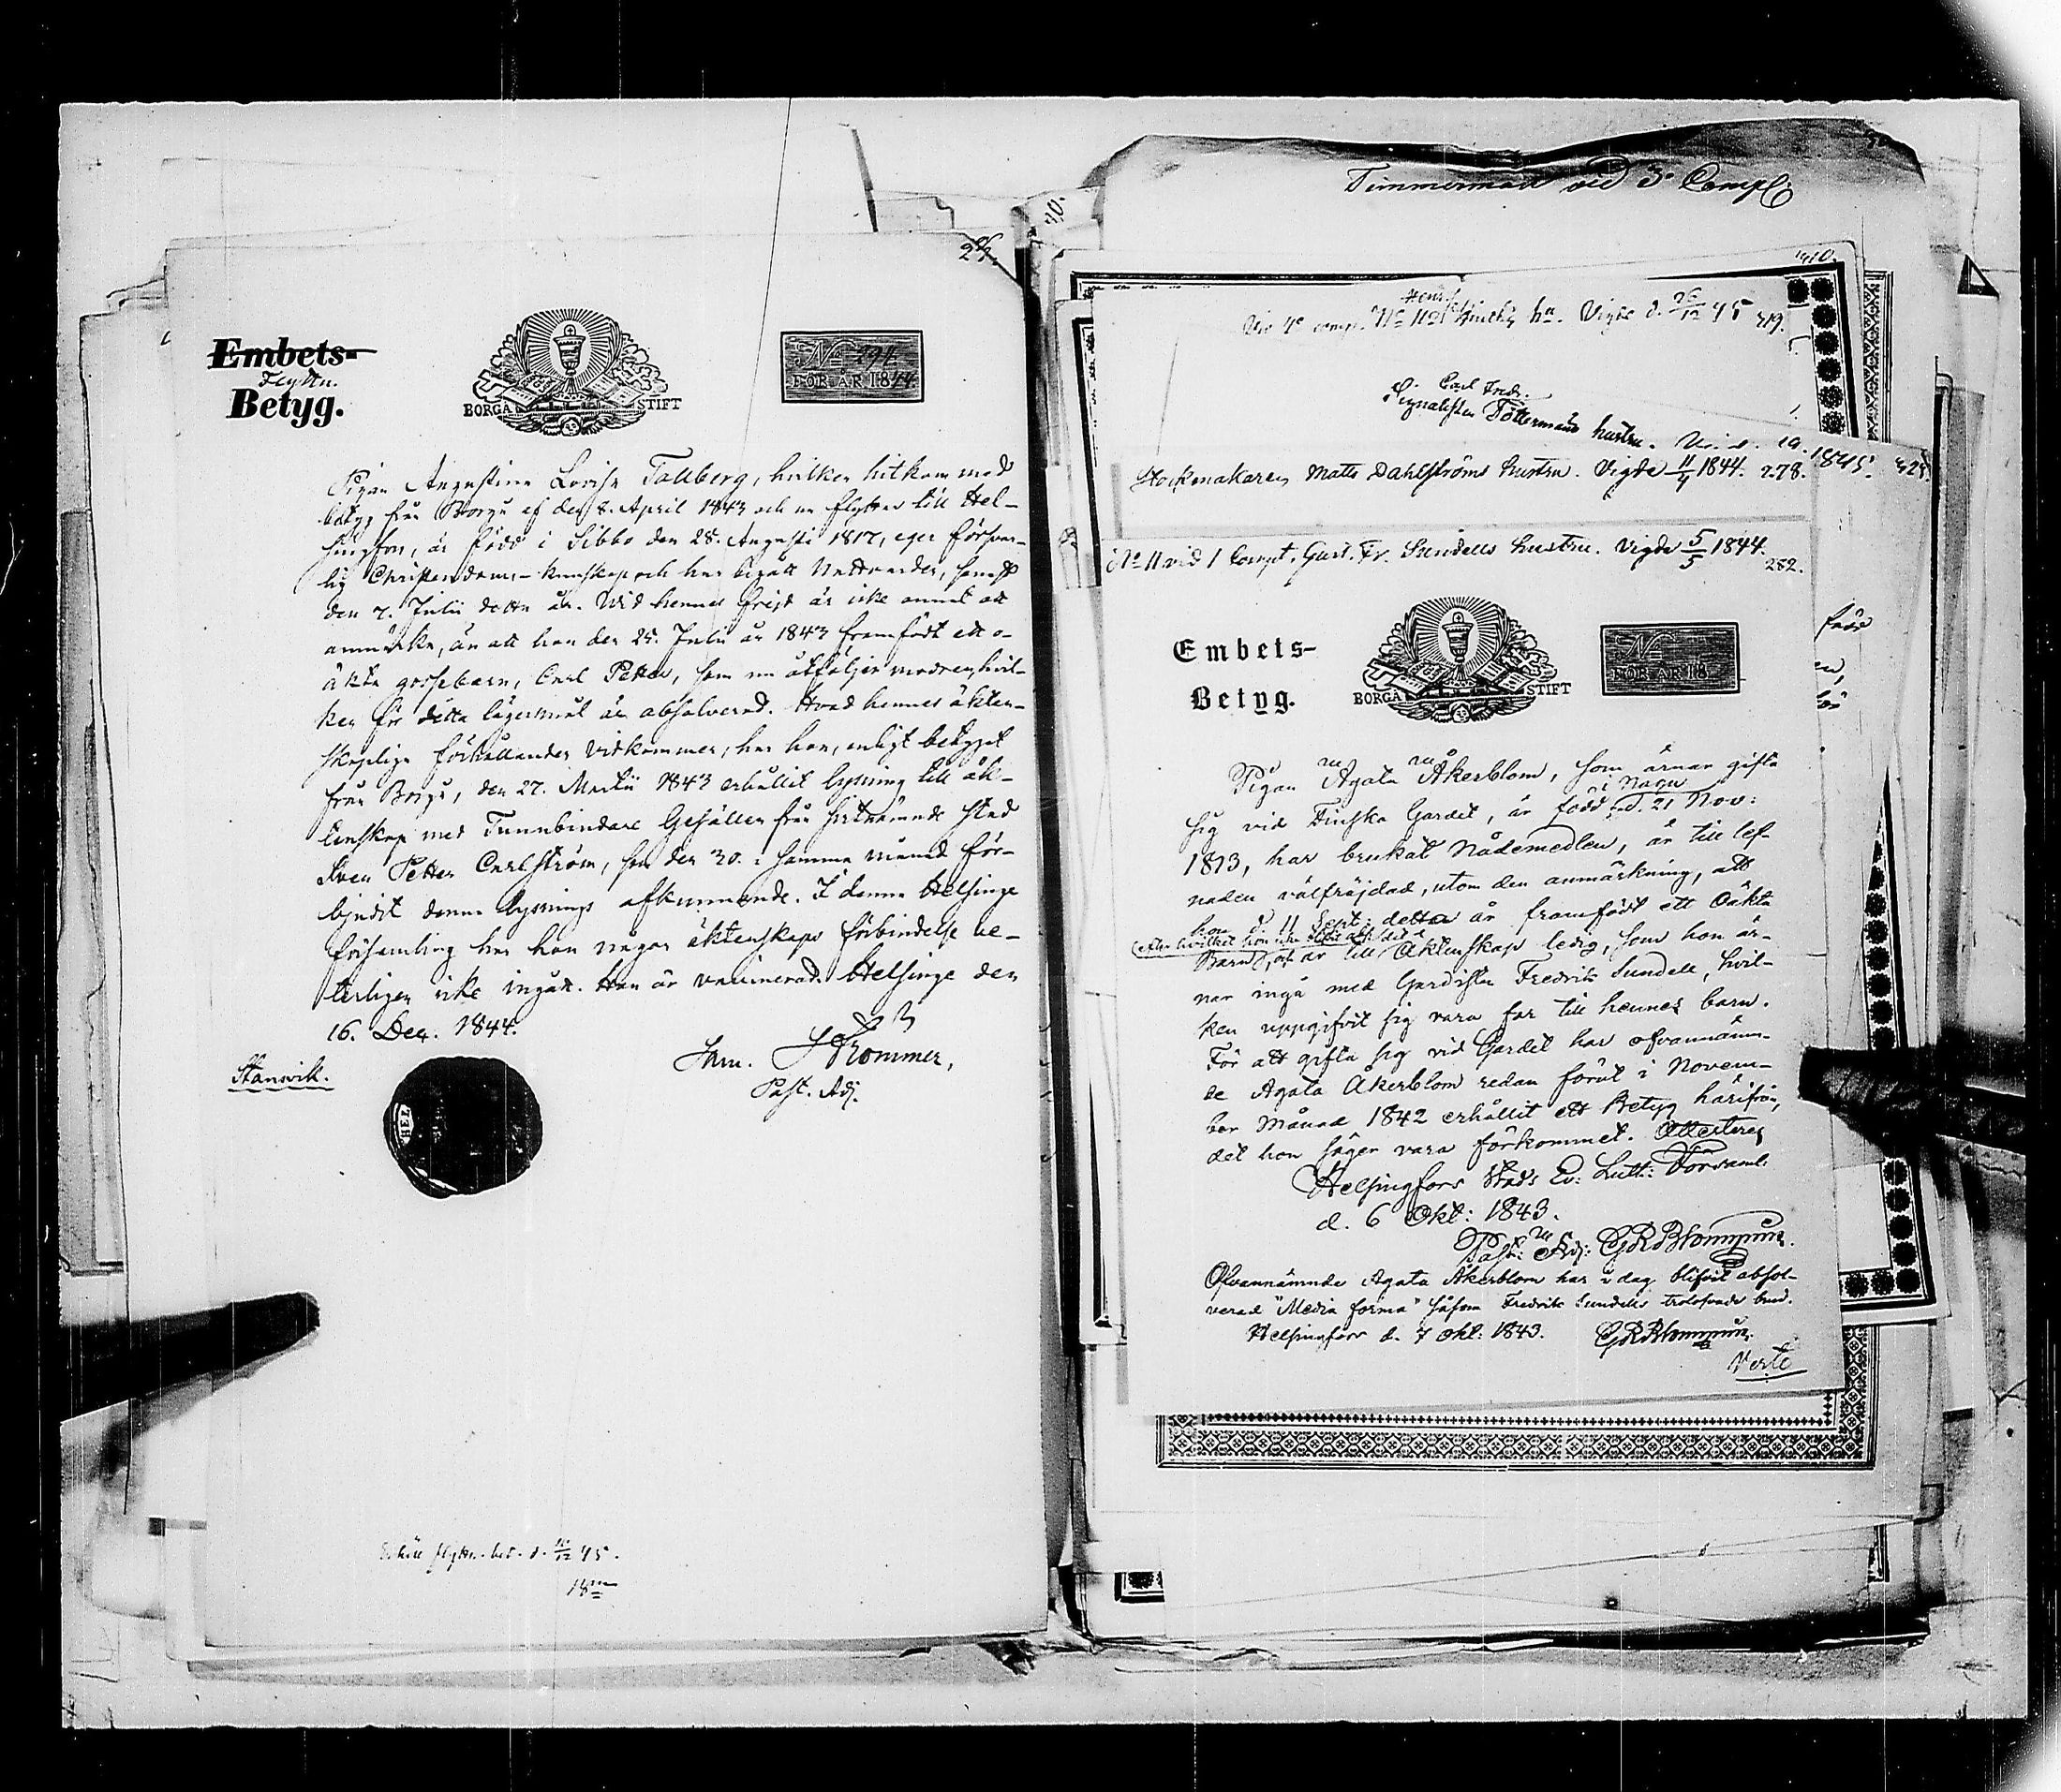 24.
Embets-
Flyttn.
Betyg.
BORGÅ STIFT
No 294.
FÖR ÅR 1844.
Pigan Augustina Lovisa Tallberg, hvilken hitkom med
betyg från Borgå af den 8. April 1843 och nu flyttar till Hel-
singfors, är född i Sibbo den 28. Augusti 1817, eger försvar-
lig Christendoms-kunskap och har begått Nattvarden, senast
den 7. Julii detta år. Wid hennes frejd är icke annat att
anmärka, än att hon den 25. Julii år 1843 framfödt ett o-
äkta gossebarn, Carl Petter, som nu åtföljer modren, hvil-
ken för detta lägersmål är absolverad. Hvad hennes äkten-
skapliga förhållanden vidkommer, har hon, enligt betyget
från Borgå, den 27. Martii 1843 erhållit lysning till äk-
tenskap med Tunnbindare Gesällen från sistnämnde stad
Sven Petter Carlström, som den 30. i samma månad för-
bjudit denna lysnings afkunnande. I denna Helsinge
församling har hon någon äktenskaps förbindelse ve-
terligen icke ingått. Hon är vaccinerad. Helsinge den
16. Dec. 1844.
Kommer,
Past. Adj.
Stansvik.
flyttn. bet. d. 45.
40.
Timmerman vid 3e Comp:
Vid 4e comp. Henr. hu. Vigde d. 26/12 45 419.
Carl Fredr.
Signalisten Töttermans hustru. 1845. 425.
Stockmakaren Matts Dahlströms hustru. Vigde 11/4 1844. 278.
No 11 vid 1 Compt. Gust. Fr. Sundells hustru. Vigde 5/5 1844.
282.
Embets-
Betyg.
BORGÅ STIFT
No
FÖR ÅR 18
Pigan Agata Åkerblom, som ärnar gifta
sig vid Finska Gardet, är född i Nagu d. 21 Nov:
1813, har brukat Nådemedlen, är till lef-
naden välfräjdad, utom den anmärkning, att
hon d 11 Sept: detta år framfödt ett Oäkta
Barn, och är till Äktenskap ledig, som hon är-
nar ingå med Gardisten Fredrik Sundell, hvil-
ken uppgifvit sig vara far till hennes barn.
För att gifta sig vid Gardet har ofvannämn-
de Agata Åkerblom redan förut i Novem-
ber Månad 1842 erhållit ett Betyg härifrån,
det hon säger vara förkommet. Attesterar
Helsingfors Stads Ev: Luth: Församl:
d. 6 Okt: 1843.
Past: Adj: G R Blomqvist.
Ofvannämnde Agata Åkerblom har i dag blifvit absol-
verad "Media forma" såsom Fredrik Sundells trolofvade brud.
Helsingfors d. 7 Okt: 1843. G R Blomqvist.
Verte